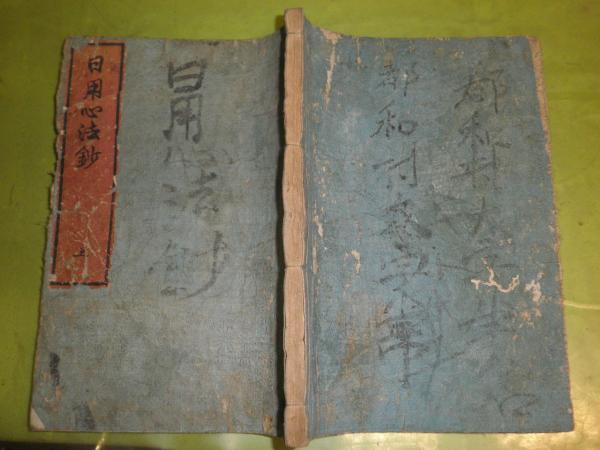 日用心法鈔
上
日用心法鈔
都和村大字
都和村大字